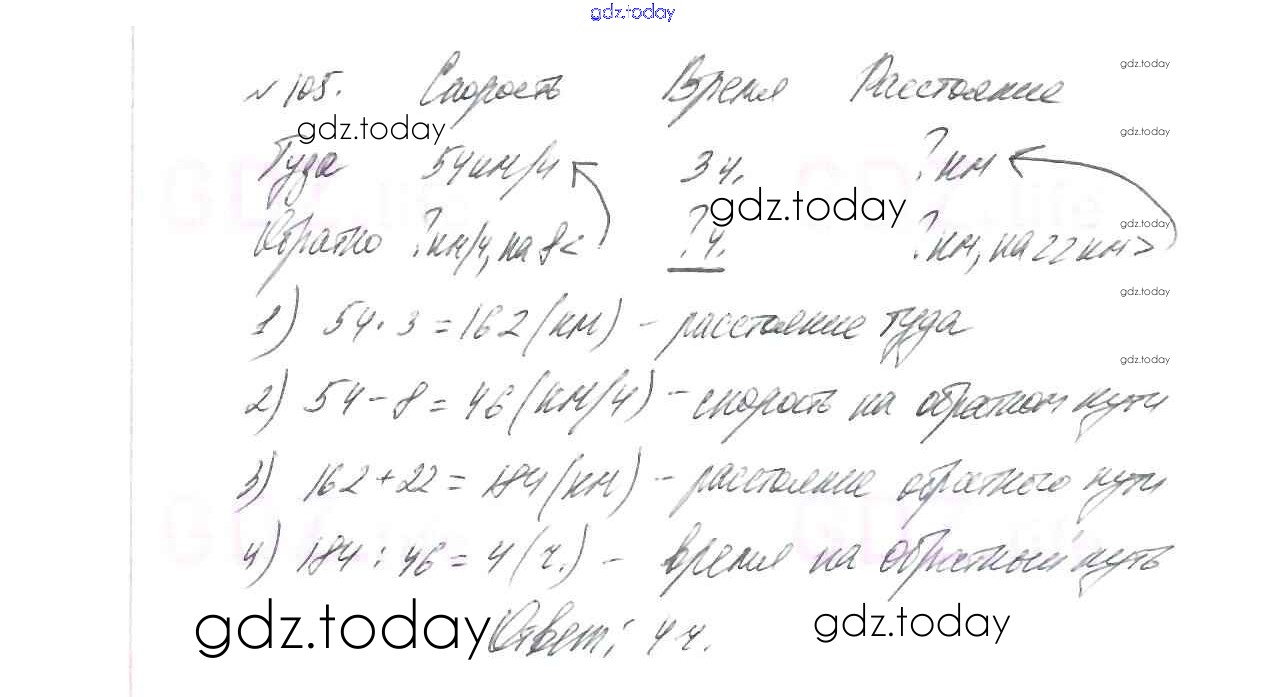 gdz.today
№105. Скорость Время Расстояние gdz.today
gdz.today gdz.today
Туда 54км/ч 3ч. ?км
gdz.today gdz.today
Обратно ?км/ч, на 8< ?ч. ?км, на 22км>
gdz.today
1) 54·3=162(км) - расстояние туда
gdz.today
2) 54-8=46(км/ч) - скорость на обратном пути
3) 162+22=184(км) - расстояние обратного пути
4) 184:46=4(ч.) - время на обратный путь
gdz.today Ответ: 4ч. gdz.today